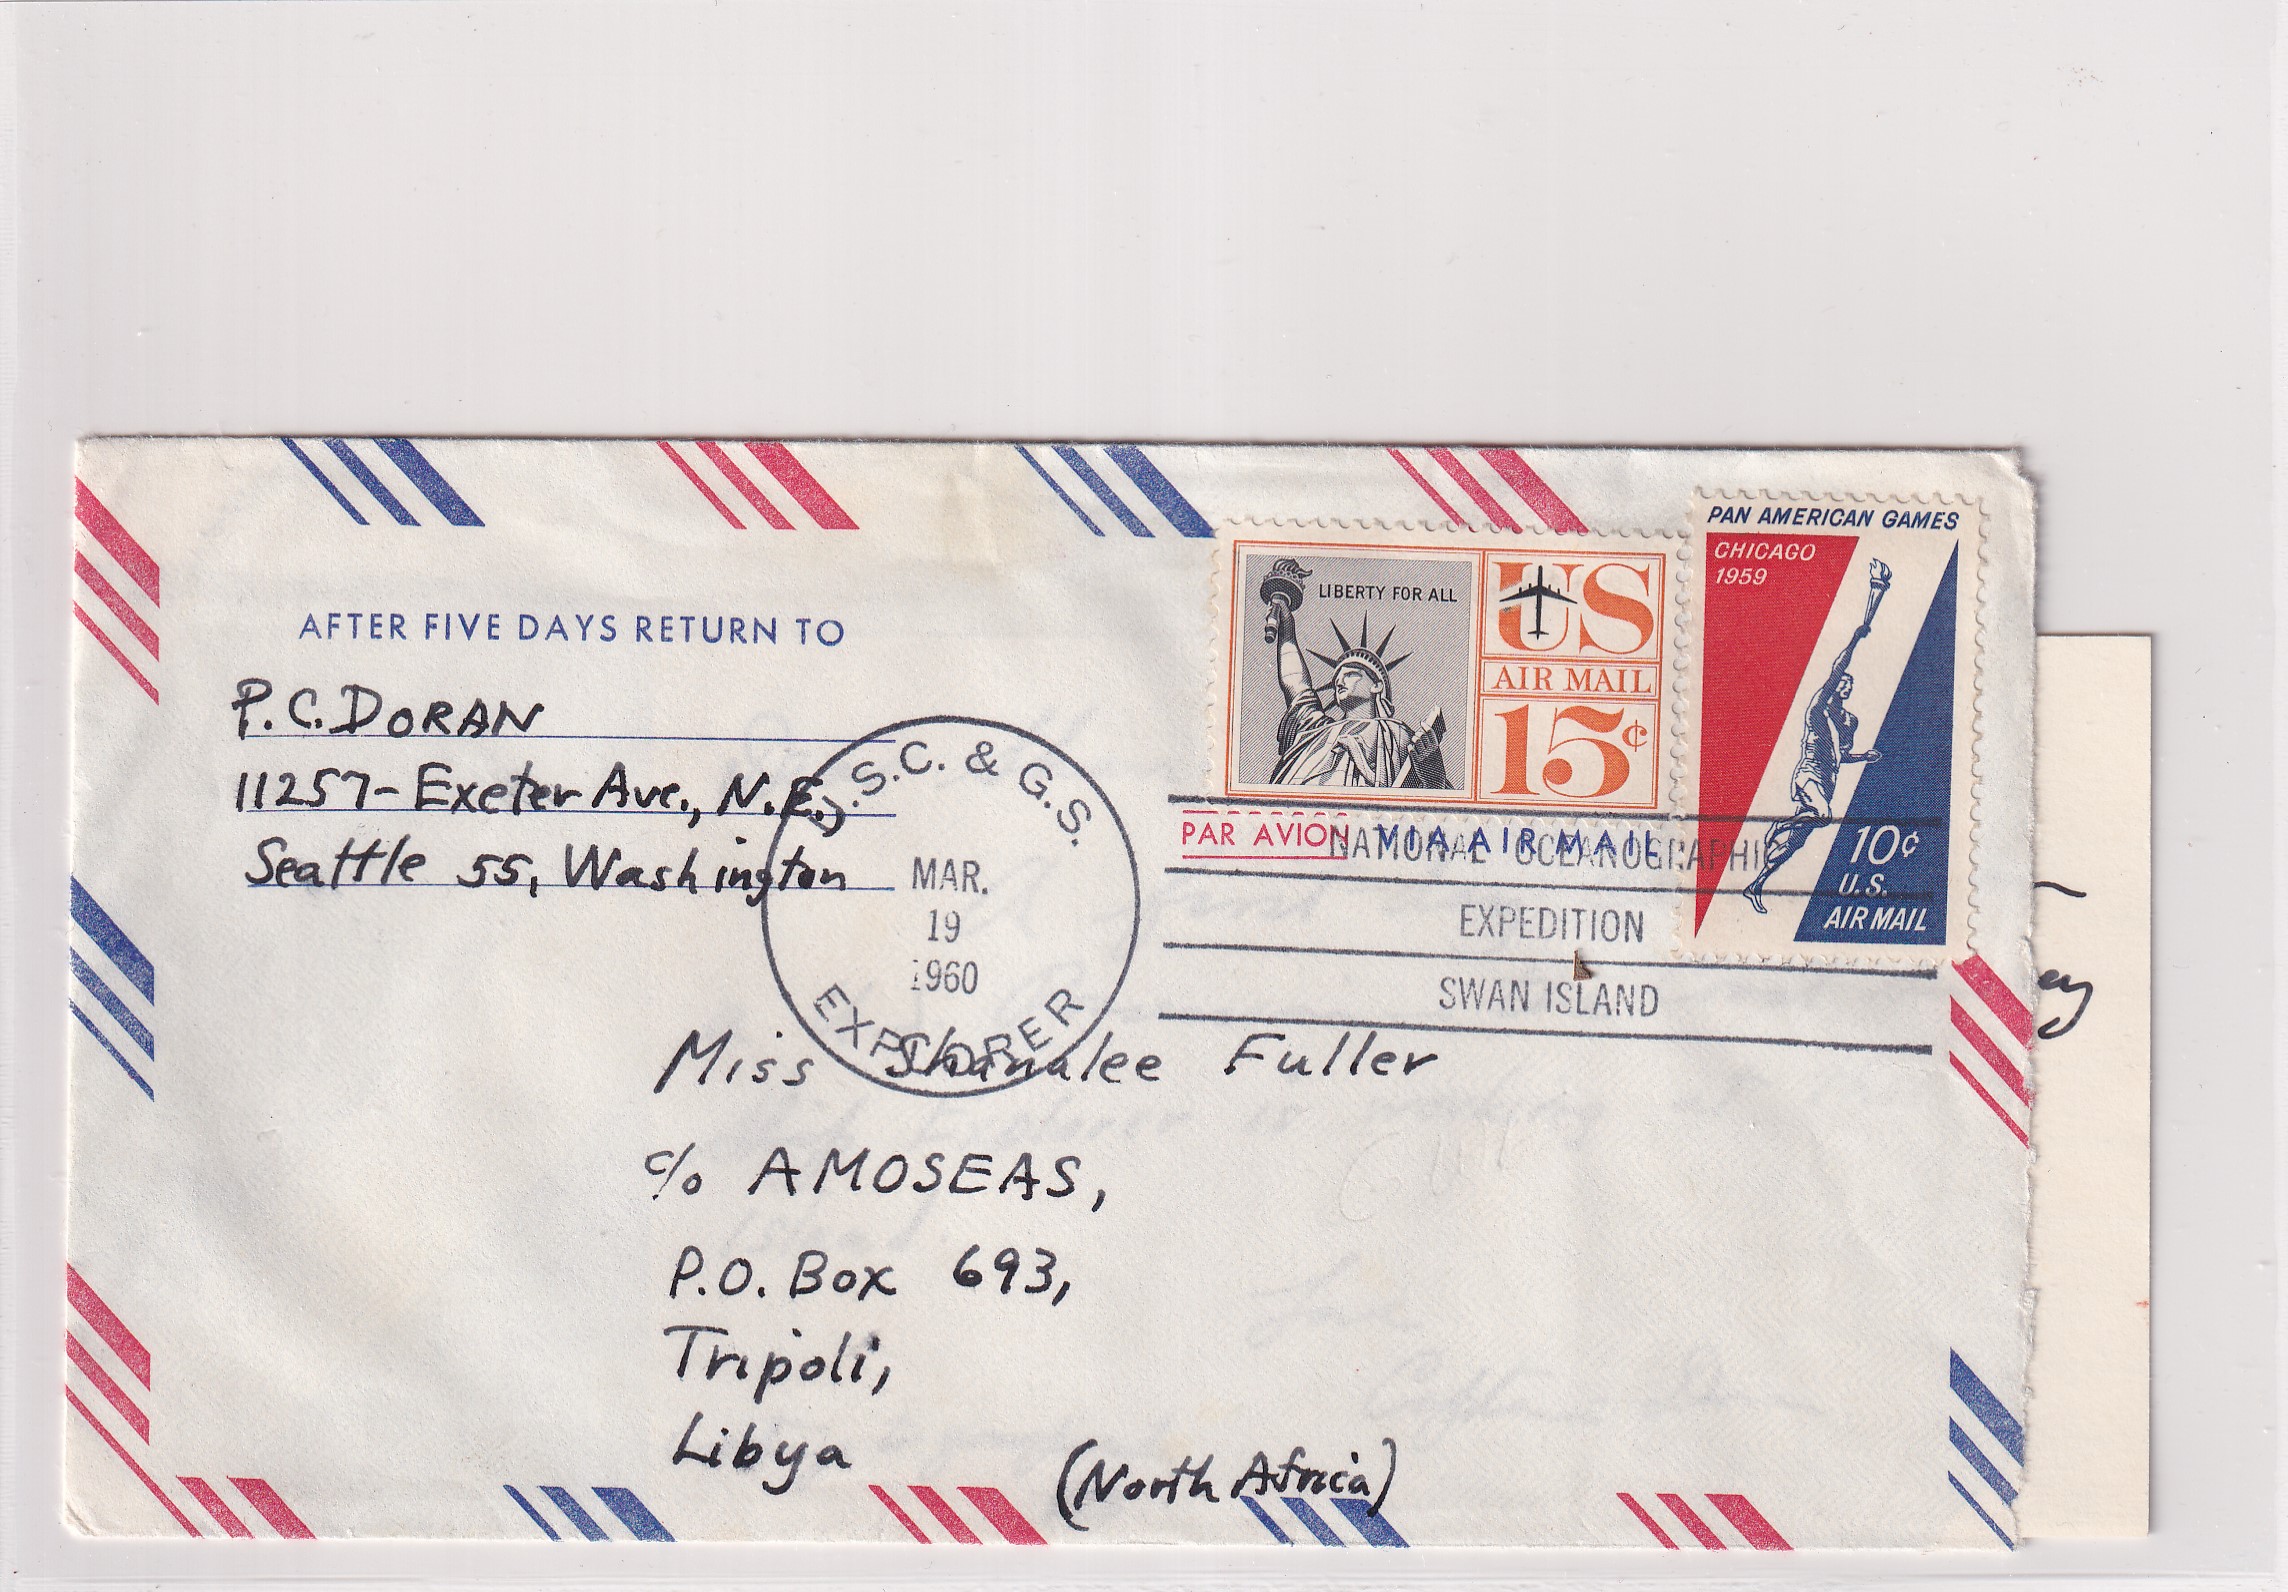 PAN AMERICAN GAMES
CHICAGO
1959
LIBERTY FOR ALL
US
AIR MAIL
15¢
10¢
U.S.
AIR MAIL
AFTER FIVE DAYS RETURN TO
P.C. DORAN
11257- Exeter Ave., N.E.,
Seattle 55, Washington
U.S.C. & G.S.
MAR.
19
1960
EXPLORER
PAR AVION VIA AIR MAIL
NATIONAL OCEANOGRAPHIC
EXPEDITION
SWAN ISLAND
Miss Shanalee Fuller
c/o AMOSEAS,
P.O. Box 693,
Tripoli,
Libya
(North Africa)